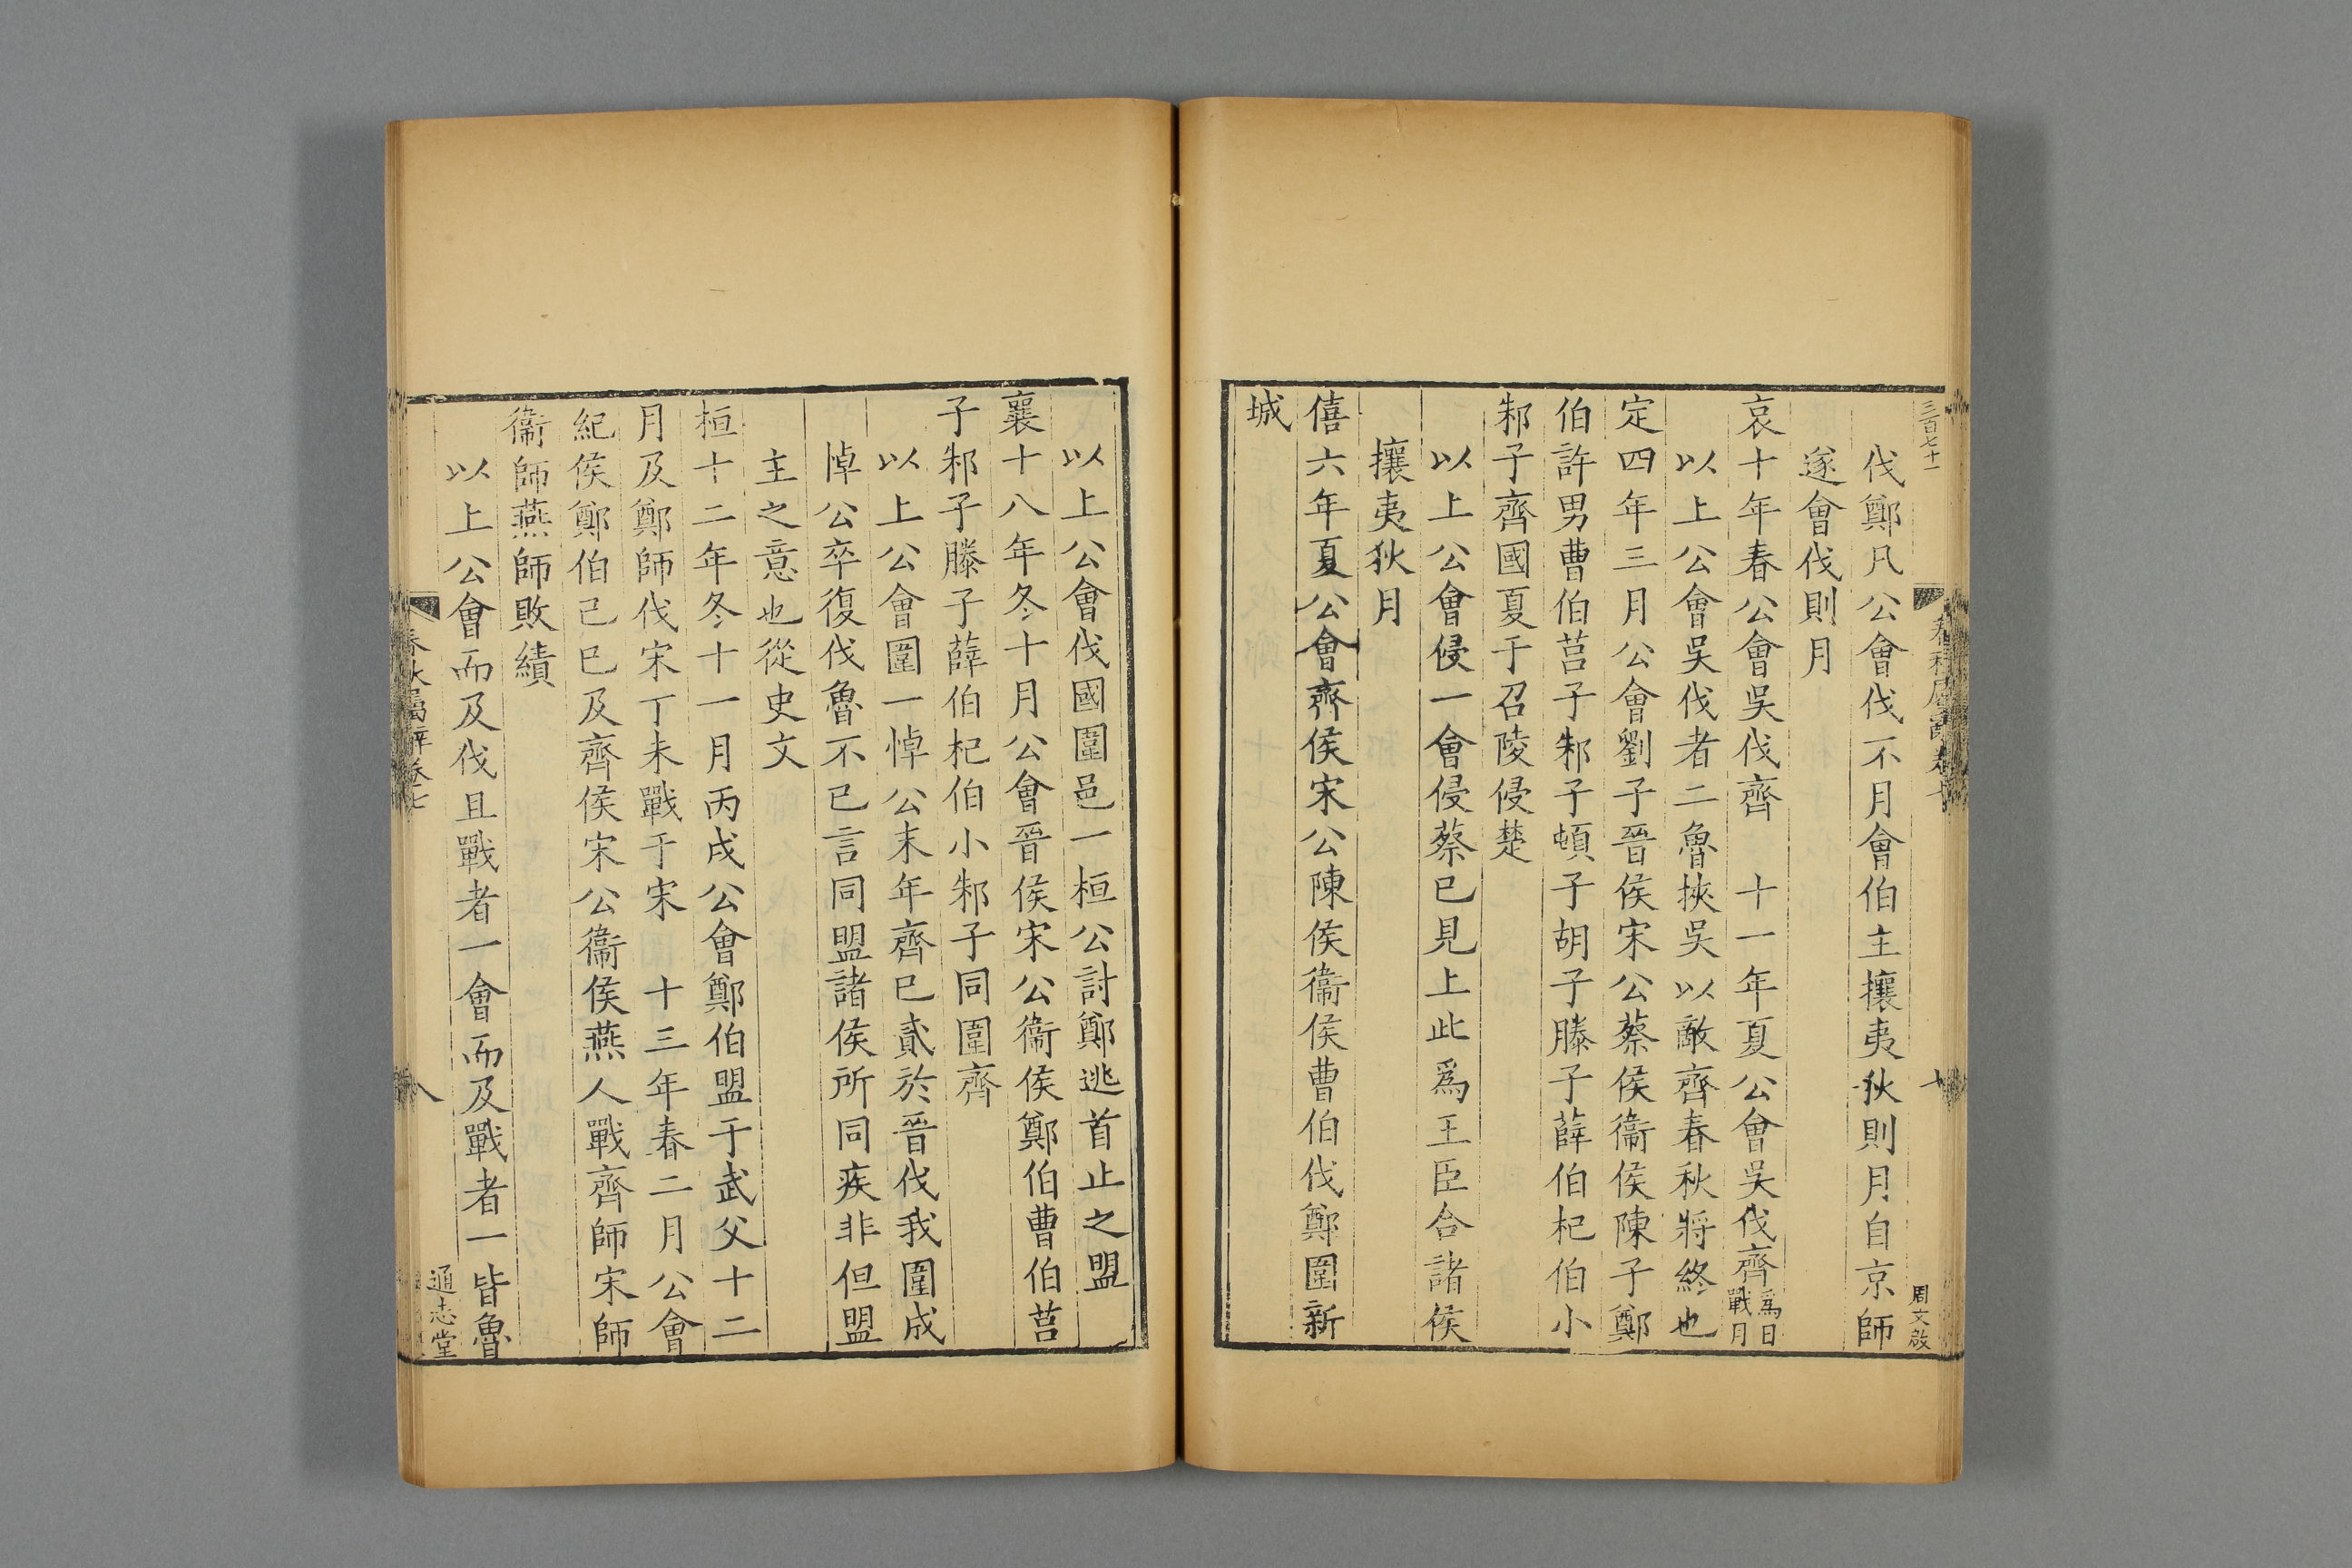 三百七十一
春秋屬辭卷七
周文啟
伐鄭凡公會伐不月會伯主攘夷狄則月自京師
遂會伐則月
哀十年春公會吳伐齊　十一年夏公會吳伐齊爲日戰月
以上公會吳伐者二魯挾吳以敵齊春秋將終也
定四年三月公會劉子晉侯宋公蔡侯衞侯陳子鄭
伯許男曹伯莒子邾子頓子胡子滕子薛伯杞伯小
邾子齊國夏于召陵侵楚
以上公會侵一會侵蔡已見上此爲王臣合諸侯
攘夷狄月
僖六年夏公會齊侯宋公陳侯衞侯曹伯伐鄭圍新
城
以上公會伐國圍邑一桓公討鄭逃首止之盟
襄十八年冬十月公會晉侯宋公衞侯鄭伯曹伯莒
子邾子滕子薛伯杞伯小邾子同圍齊
以上公會圍一悼公末年齊已貳於晉伐我圍成
悼公卒復伐魯不已言同盟諸侯所同疾非但盟
主之意也從史文
桓十二年冬十一月丙戌公會鄭伯盟于武父十二
月及鄭師伐宋丁未戰于宋　十三年春二月公會
紀侯鄭伯己巳及齊侯宋公衞侯燕人戰齊師宋師
衞師燕師敗績
以上公會而及伐且戰者一會而及戰者一皆魯
春秋屬辭卷七
八
通志堂